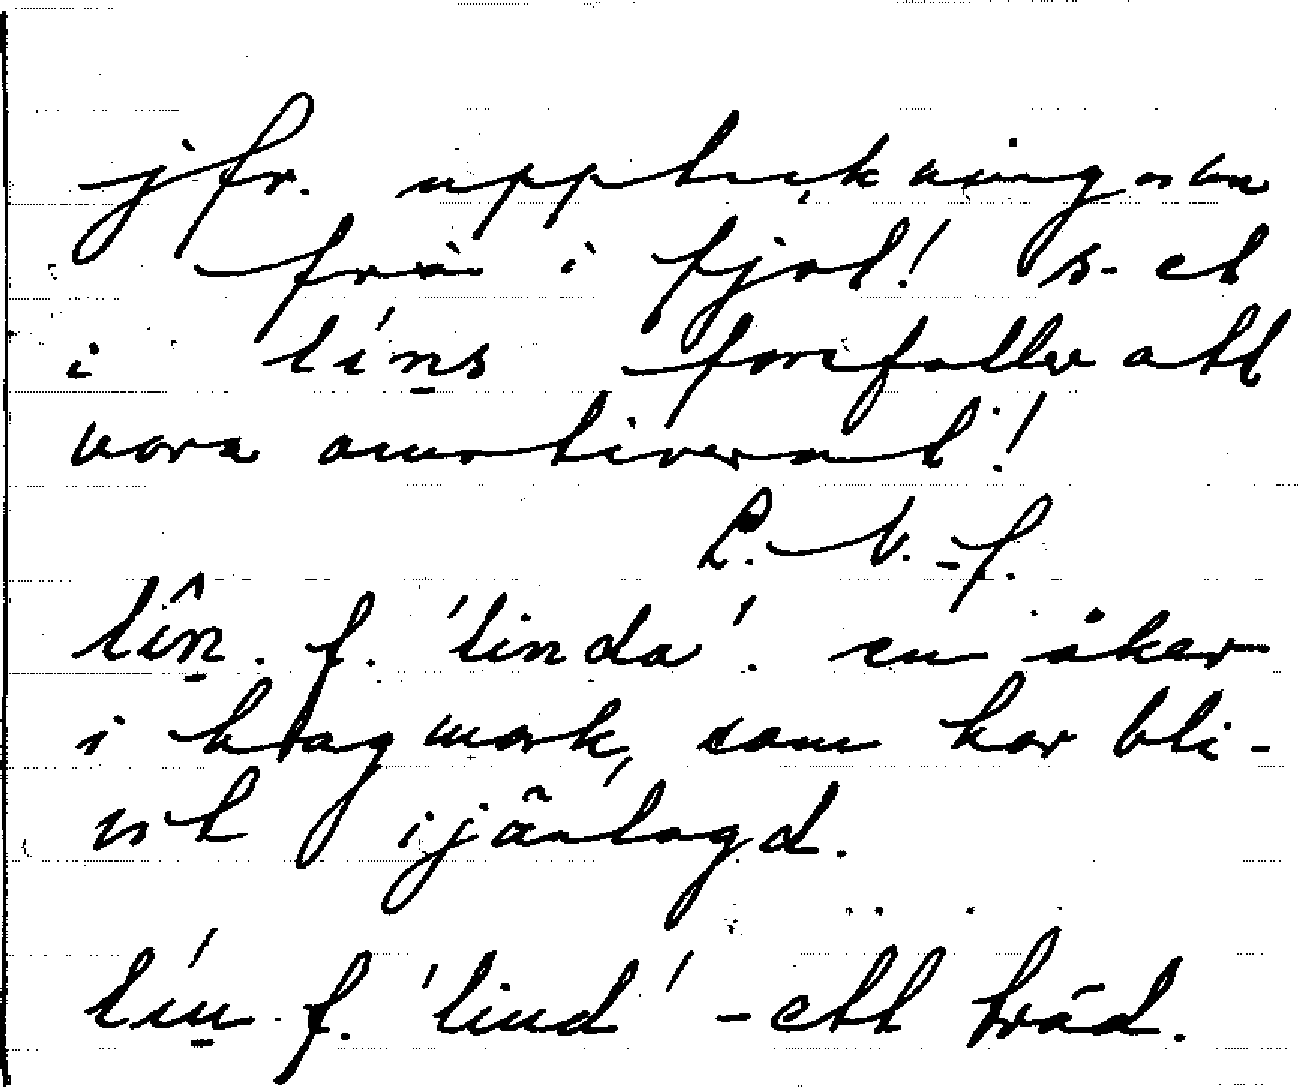 jfr. uppteckningarna
från i fjol! s-et
i lín̠s förefaller att
vara omotiverat!
L. V-f.
lîn̠. f. 'linda'. en åker
i hagmark, som har bli-
vit ijänlagd.
lín̠ f. 'lind' - ett träd.